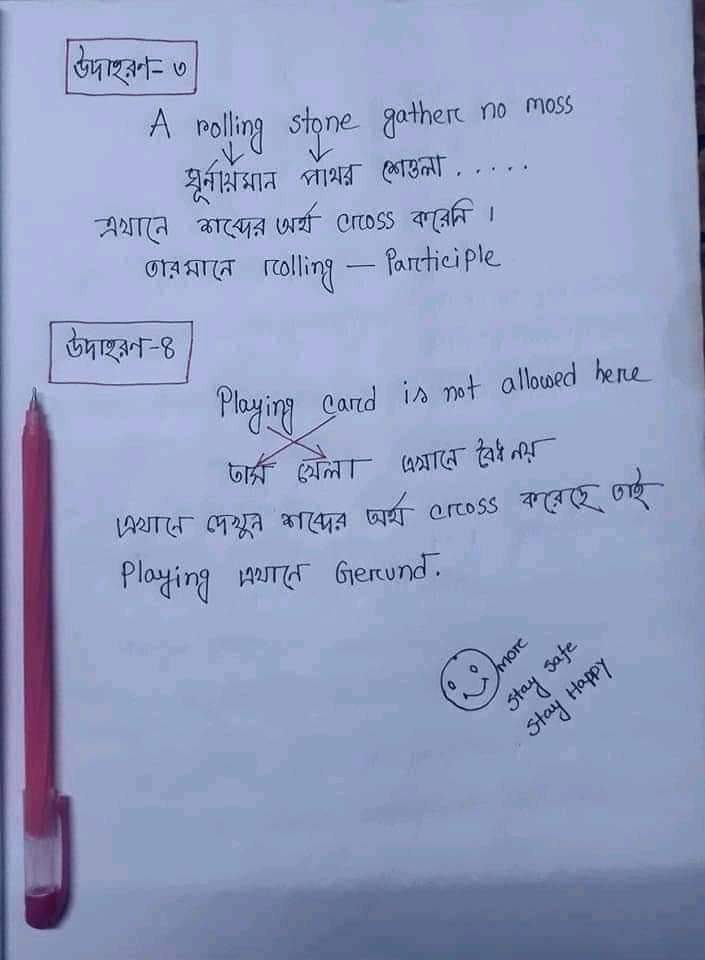 উদাহরণ- ৩
A rolling stone gather no moss
ঘূর্নায়মান পাথর শেওলা . . . . .
এখানে শব্দের অর্থ cross করেনি ।
তারমানে rolling — Participle
উদাহরণ-৪
Playing card is not allowed here
তাস খেলা এখানে বৈধ নয়
এখানে দেখুন শব্দের অর্থ cross করেছে তাই
Playing এখানে Gerund.
more
stay safe
stay Happy